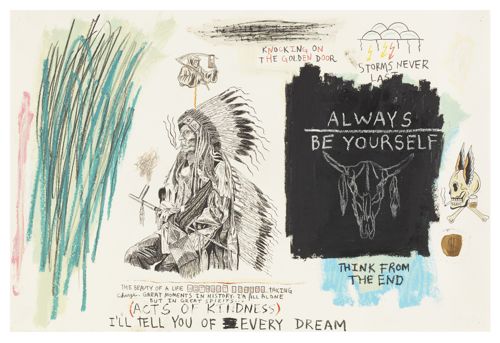 KNOCKING ON
THE GOLDEN DOOR
STORMS NEVER
LAST
ALWAYS
BE YOURSELF
THINK FROM
THE END
THE BEAUTY OF A LIFE TAKING
Change. GREAT MOMENTS IN HISTORY. I'M ALL ALONE
BUT IN GREAT SPIRITS...
(ACTS OF KINDNESS)
I'LL TELL YOU OF EVERY DREAM